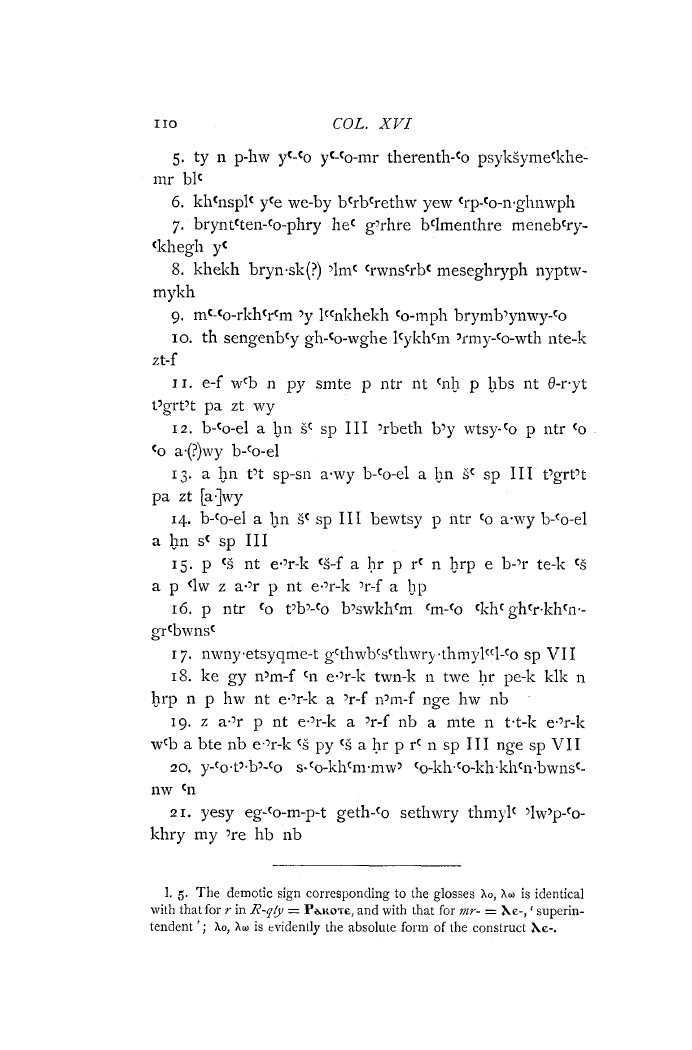 110 COL. XVI
5. ty n p-hw yʿ-ʿo yʿ-ʿo-mr therenth-ʿo psykšymeʿkhe-
mr blʿ
6. khʿnsplʿ yʿe we-by bʿrbʿrethw yew ʿrp-ʿo-n·ghnwph
7. bryntʿten-ʿo-phry heʿ gʾrhre bʿlmenthre menebʿry-
ʿkhegh yʿ
8. khekh bryn·sk(?) ʾlmʿ ʿrwnsʿrbʿ meseghryph nyptw-
mykh
9. mʿ-ʿo-rkhʿrʿm ʾy lʿʿnkhekh ʿo-mph brymbʾynwy-ʿo
10. th sengenbʿy gh-ʿo-wghe lʿykhʿm ʾrmy-ʿo-wth nte-k
zt-f
11. e-f wʿb n py smte p ntr nt ʿnḫ p ḫbs nt θ-r·yt
tʾgrtʾt pa zt wy
12. b-ʿo-el a ḫn šʿ sp III ʾrbeth bʾy wtsy-ʿo p ntr ʿo
ʿo a·(?)wy b-ʿo-el
13. a ḫn tʾt sp-sn a·wy b-ʿo-el a ḫn šʿ sp III tʾgrtʾt
pa zt [a·]wy
14. b-ʿo-el a ḫn šʿ sp III bewtsy p ntr ʿo a·wy b-ʿo-el
a ḫn sʿ sp III
15. p ʿš nt e·ʾr-k ʿš-f a ḥr p rʿ n ḥrp e b-ʾr te-k ʿš
a p ʿlw z a·ʾr p nt e·ʾr-k ʾr-f a ḫp
16. p ntr ʿo tʾbʾ-ʿo bʾswkhʿm ʿm-ʿo ʿkhʿ ghʿr·khʿn·-
grʿbwnsʿ
17. nwny·etsyqme-t gʿthwbʿsʿthwry·thmylʿʿl-ʿo sp VII
18. ke gy nʾm-f ʿn e·ʾr-k twn-k n twe ḥr pe-k klk n
ḥrp n p hw nt e·ʾr-k a ʾr-f nʾm-f nge hw nb
19. z a·ʾr p nt e·ʾr-k a ʾr-f nb a mte n t·t-k e·ʾr-k
wʿb a bte nb e·ʾr-k ʿš py ʿš a ḥr p rʿ n sp III nge sp VII
20. y-ʿo·tʾ·bʾ-ʿo s·ʿo-khʿm·mwʾ ʿo-kh·ʿo-kh·khʿn·bwnsʿ-
nw ʿn
21. yesy eg-ʿo-m-p-t geth-ʿo sethwry thmylʿ ʾlwʾp-ʿo-
khry my ʾre hb nb
l. 5. The demotic sign corresponding to the glosses λο, λω is identical
with that for r in R-qty = Ⲣⲁⲕⲟⲧⲉ, and with that for mr- = ⲗⲉ-, ‘superin-
tendent’; λο, λω is evidently the absolute form of the construct ⲗⲉ-.